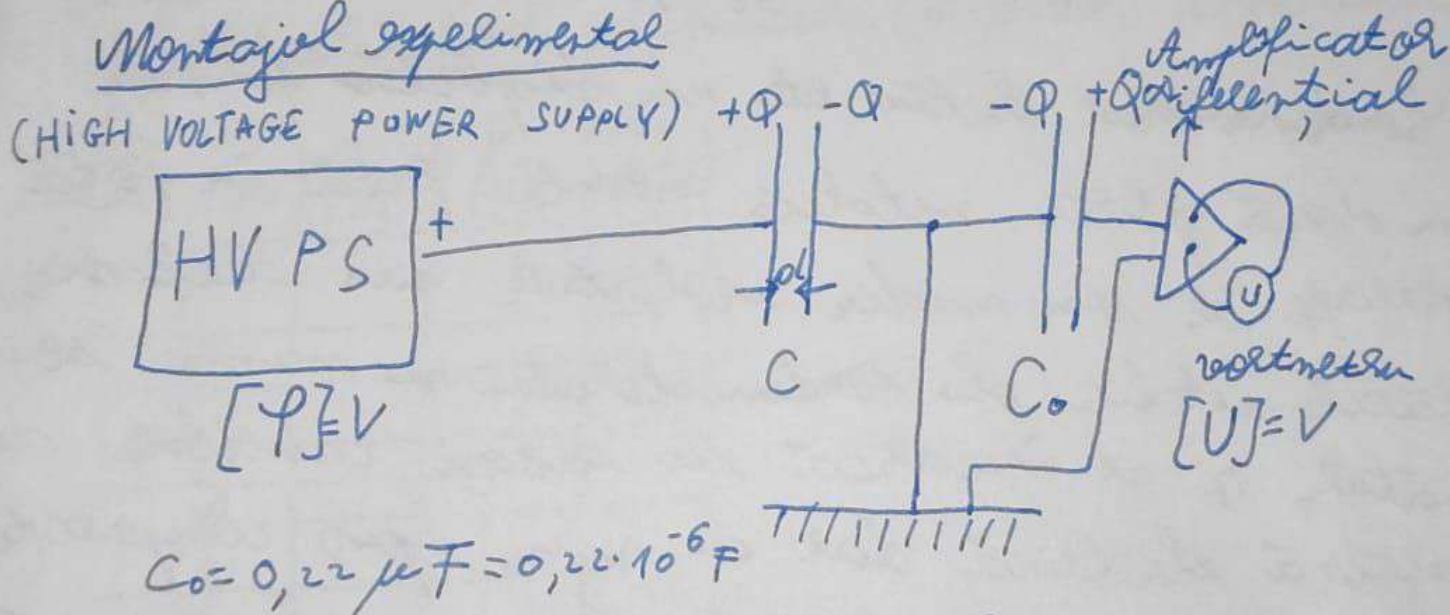 Montajul experimental
(HIGH VOLTAGE POWER SUPPLY)
+Q -Q
-Q +Q
Amplificator
diferențial
HV PS
+
d
C
C₀
U
voltmetru
[φ]=V
[U]=V
C₀=0,22 μF=0,22·10⁻⁶ F